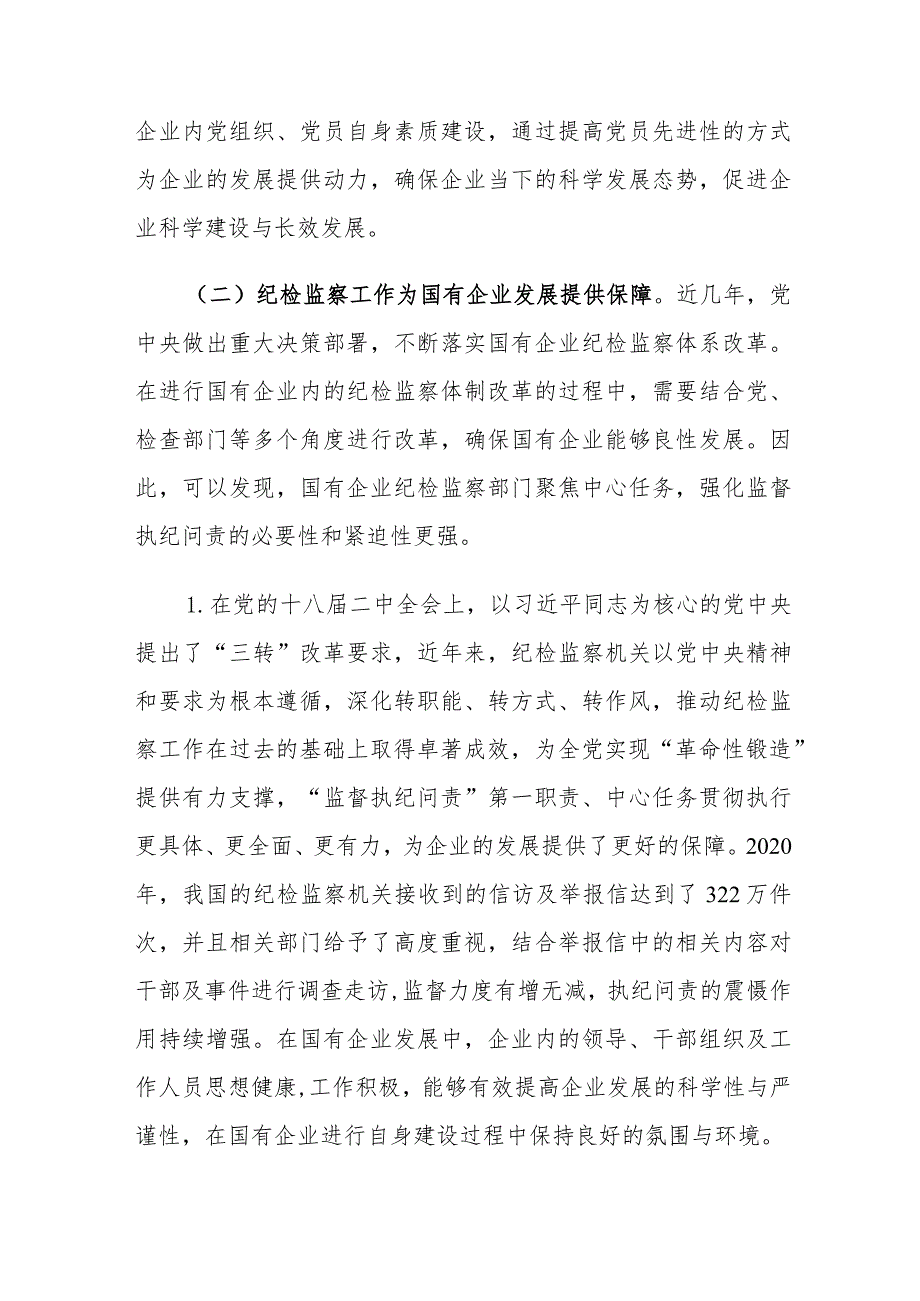 企业内党组织、党员自身素质建设，通过提高党员先进性的方式
为企业的发展提供动力，确保企业当下的科学发展态势，促进企
业科学建设与长效发展。
（二）纪检监察工作为国有企业发展提供保障。近几年，党
中央做出重大决策部署，不断落实国有企业纪检监察体系改革。
在进行国有企业内的纪检监察体制改革的过程中，需要结合党、
检查部门等多个角度进行改革，确保国有企业能够良性发展。因
此，可以发现，国有企业纪检监察部门聚焦中心任务，强化监督
执纪问责的必要性和紧迫性更强。
1.在党的十八届二中全会上，以习近平同志为核心的党中央
提出了“三转”改革要求，近年来，纪检监察机关以党中央精神
和要求为根本遵循，深化转职能、转方式、转作风，推动纪检监
察工作在过去的基础上取得卓著成效，为全党实现“革命性锻造”
提供有力支撑，“监督执纪问责”第一职责、中心任务贯彻执行
更具体、更全面、更有力，为企业的发展提供了更好的保障。2020
年，我国的纪检监察机关接收到的信访及举报信达到了 322 万件
次，并且相关部门给予了高度重视，结合举报信中的相关内容对
干部及事件进行调查走访,监督力度有增无减，执纪问责的震慑作
用持续增强。在国有企业发展中，企业内的领导、干部组织及工
作人员思想健康,工作积极，能够有效提高企业发展的科学性与严
谨性，在国有企业进行自身建设过程中保持良好的氛围与环境。